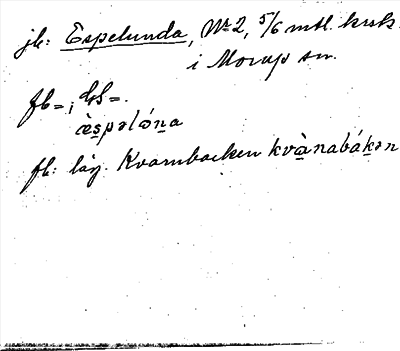 jb: Espelunda, No 2, 5/6 mtl. krsk.
i Morup sn.
fb=; bf=.
æ̀spəlón̠a
fb: läg. Kvarnbacken kvànabák̠ən